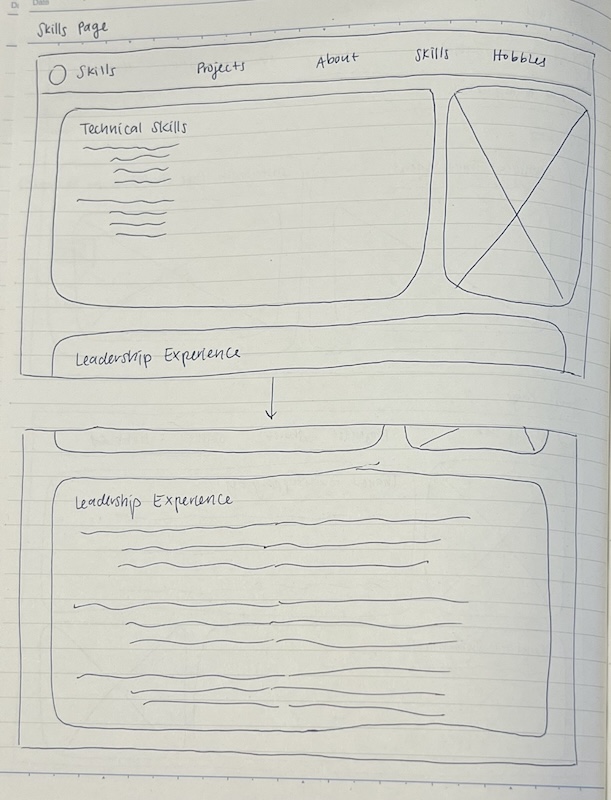 Date
Skills Page
Skills Projects About Skills Hobbies
Technical Skills
Leadership Experience
Leadership Experience